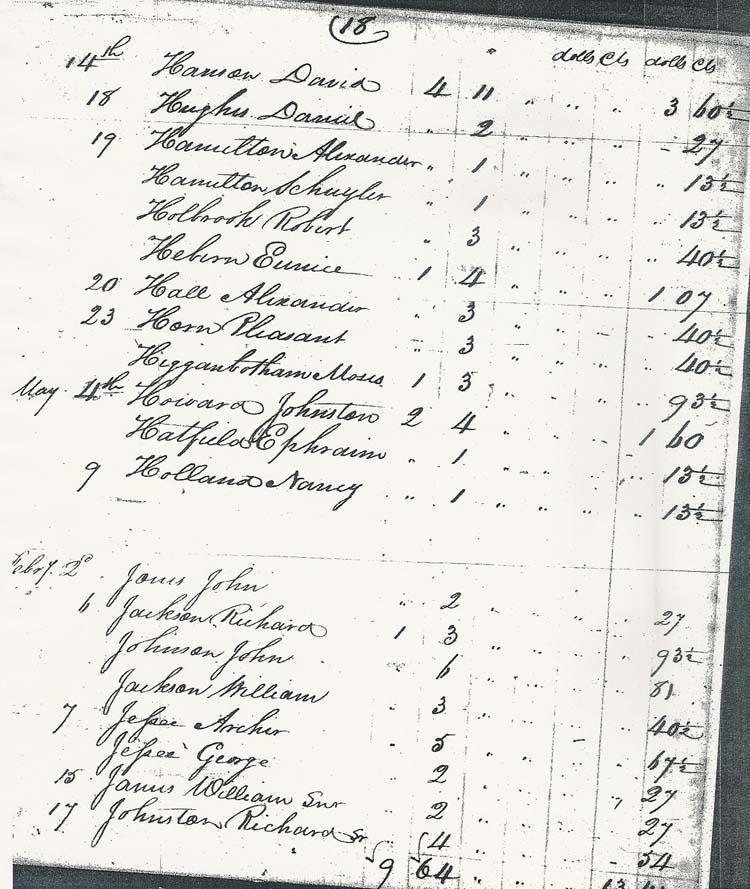 18
dolls Cts dolls Cts
14th Hanson David 4 11 " " " 3 60½
18 Hughes Daniel " 2 " " " - 27
19 Hamilton Alexander " 1 " " " " 13½
Hamilton Schuyler " 1 " " " " 13½
Holbrook Robert " 3 " " " " 40½
Hebirn Eunice 1 4 " " " 1 07
20 Hall Alexander " 3 " " " " 40½
23 Horn Pleasant " 3 " " " " 40½
Higganbotham Moses 1 3 " " " " 93½
May 4th Howard Johnston 2 4 " " " 1 60
Hatfield Ephraim " 1 " " " " 13½
9 Holland Nancy " 1 " " " " 13½
Febry. 2d Jones John " 2 " " " " 27
6 Jackson Richard 1 3 " " " " 93½
Johnson John " 6 " " " " 81
Jackson William " 3 " " " " 40½
7 Jessee Archer " 5 " " - " 67½
Jessee George " 2 " " " " 27
15 James William Snr " 2 " " " " 27
17 Johnston Richard Sr " 4 " " " - 54
9 64 " "